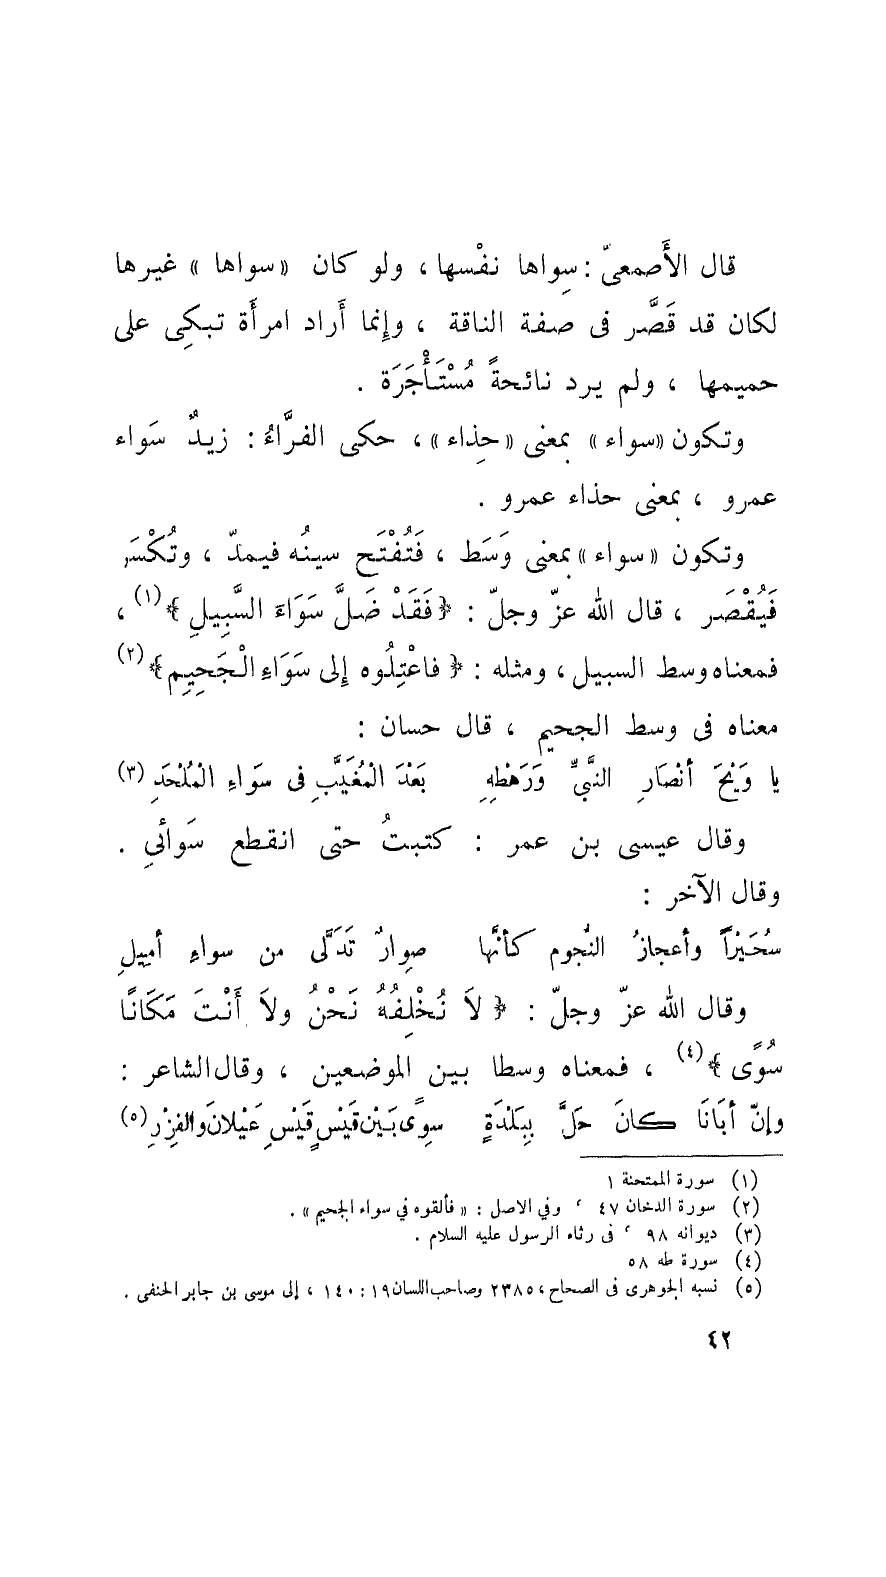 قال الأَصمعىّ : سِواها نفْسها ، ولو كان «سواها» غيرها
لكان قد قَصَّر فى صفة الناقة ، وإنما أَراد امرأَة تبكِى على
حميمها ، ولم يرد نائحةً مُسْتَأْجَرَة .
وتكون «سواء» بمعنى «حِذاء» ، حكى الفرَّاءُ : زيدٌ سَواء
عمرو ، بمعنى حذاء عمرو .
وتكون «سواء» بمعنى وَسَط ، فَتُفْتَح سينُه فيمدّ ، وتُكْسَر
فَيُقْصَر ، قال الله عزّ وجلّ : ﴿فَقَدْ ضَلَّ سَوَاءَ السَّبِيلِ﴾(١) ،
فمعناه وسط السبيل ، ومثله : ﴿فاعْتِلُوه إلى سَوَاءِ الْجَحِيمِ﴾(٢)
معناه فى وسط الجحيم ، قال حسان :
يا وَيْحَ أنْصَارِ النَّبِيِّ وَرَهْطِهِ بَعْدَ الْمُغَيَّبِ فى سَواءِ الْمُلْحَدِ (٣)
وقال عيسى بن عمر : كتبتُ حتى انقطع سَوائي .
وقال الآخر :
سُحَيْراً وأعجازُ النُّجوم كأنَّها صِوارٌ تَدَلَّى من سواءِ أمِيلِ
وقال الله عزّ وجلّ : ﴿لاَ نُخْلِفُهُ نَحْنُ ولاَ أَنْتَ مَكَانًا
سُوًى﴾(٤) ، فمعناه وسطا بين الموضعين ، وقال الشاعر :
وإنّ أبَانَا كانَ حَلَّ بِبَلْدَةٍ سِوًى بَيْن قَيْسٍ قَيْسِ عَيْلانَ والفِزْرِ (٥)
(١) سورة الممتحنة ١
(٢) سورة الدخان ٤٧ ، وفي الاصل : « فألقوه في سواء الجحيم » .
(٣) ديوانه ٩٨ ، فى رثاء الرسول عليه السلام .
(٤) سورة طه ٥٨
(٥) نسبه الجوهرى فى الصحاح ، ٢٣٨٥ وصاحب اللسان ١٩ : ١٤٠ ، إلى موسى بن جابر الحنفى .
٤٢